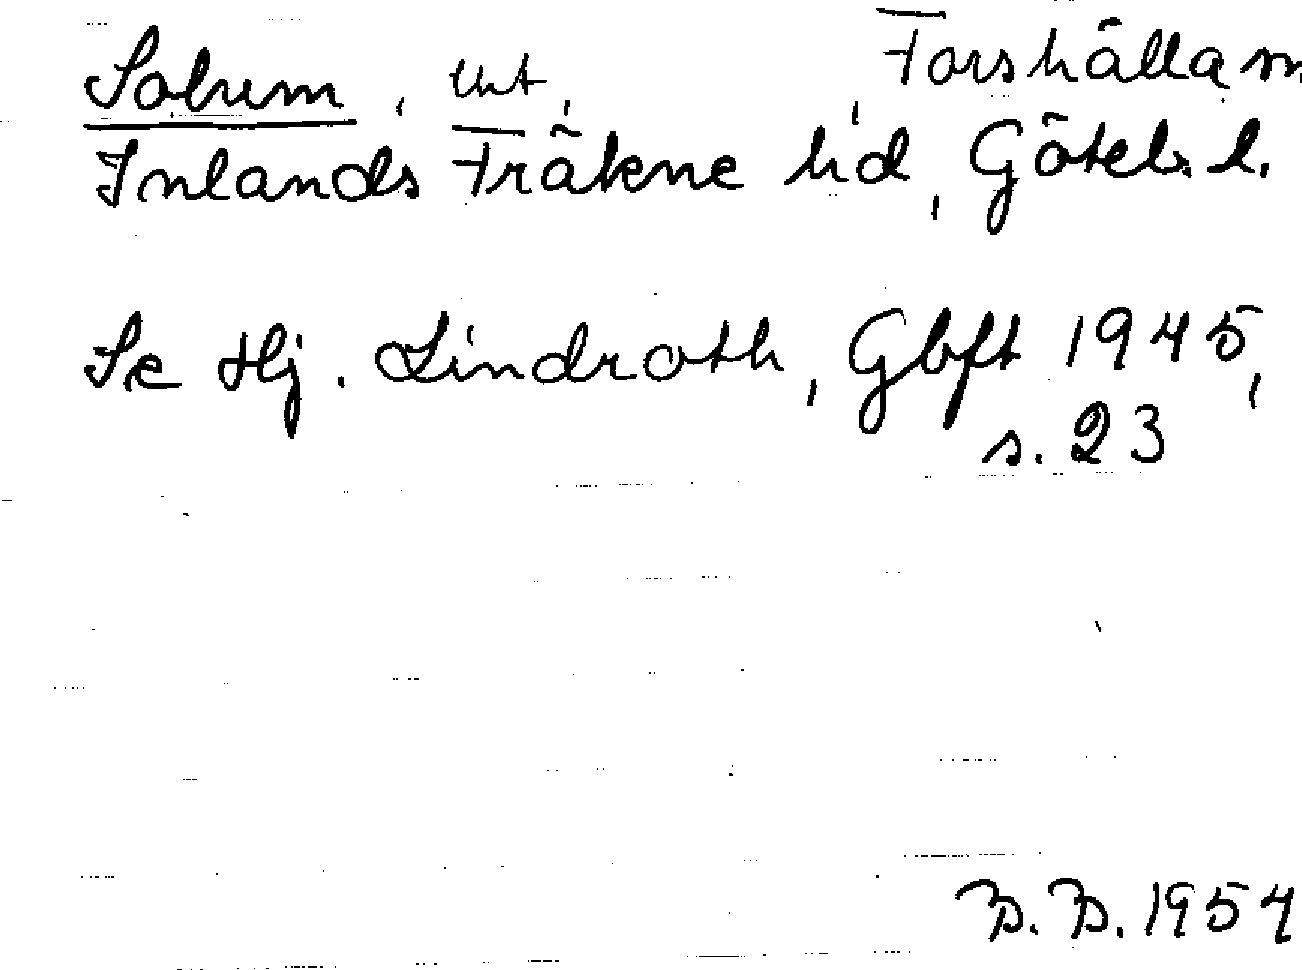 Solum, unt, Forshälla sn,
Inlands Fräkne hd, Göteb. l.
Se Hj. Lindroth, Gbft 1945,
s. 23
B. B. 1954